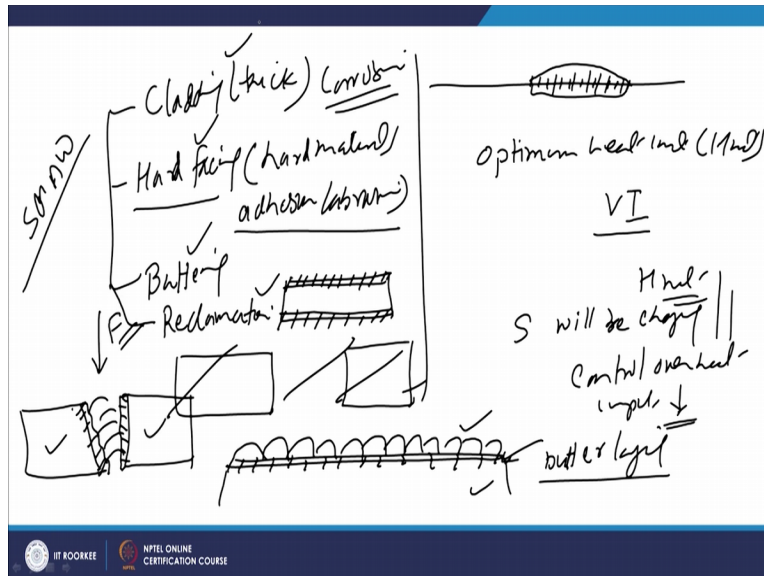 SMAW
Cladding (thick) Corrosion
Hard facing (hard material)
adhesion/abrasion)
Buttering
F Reclamation
Optimum heat (Hnet)
VI
Hnet
S will be change
Control over heat
input
butter layer
IIT ROORKEE
NPTEL ONLINE
CERTIFICATION COURSE